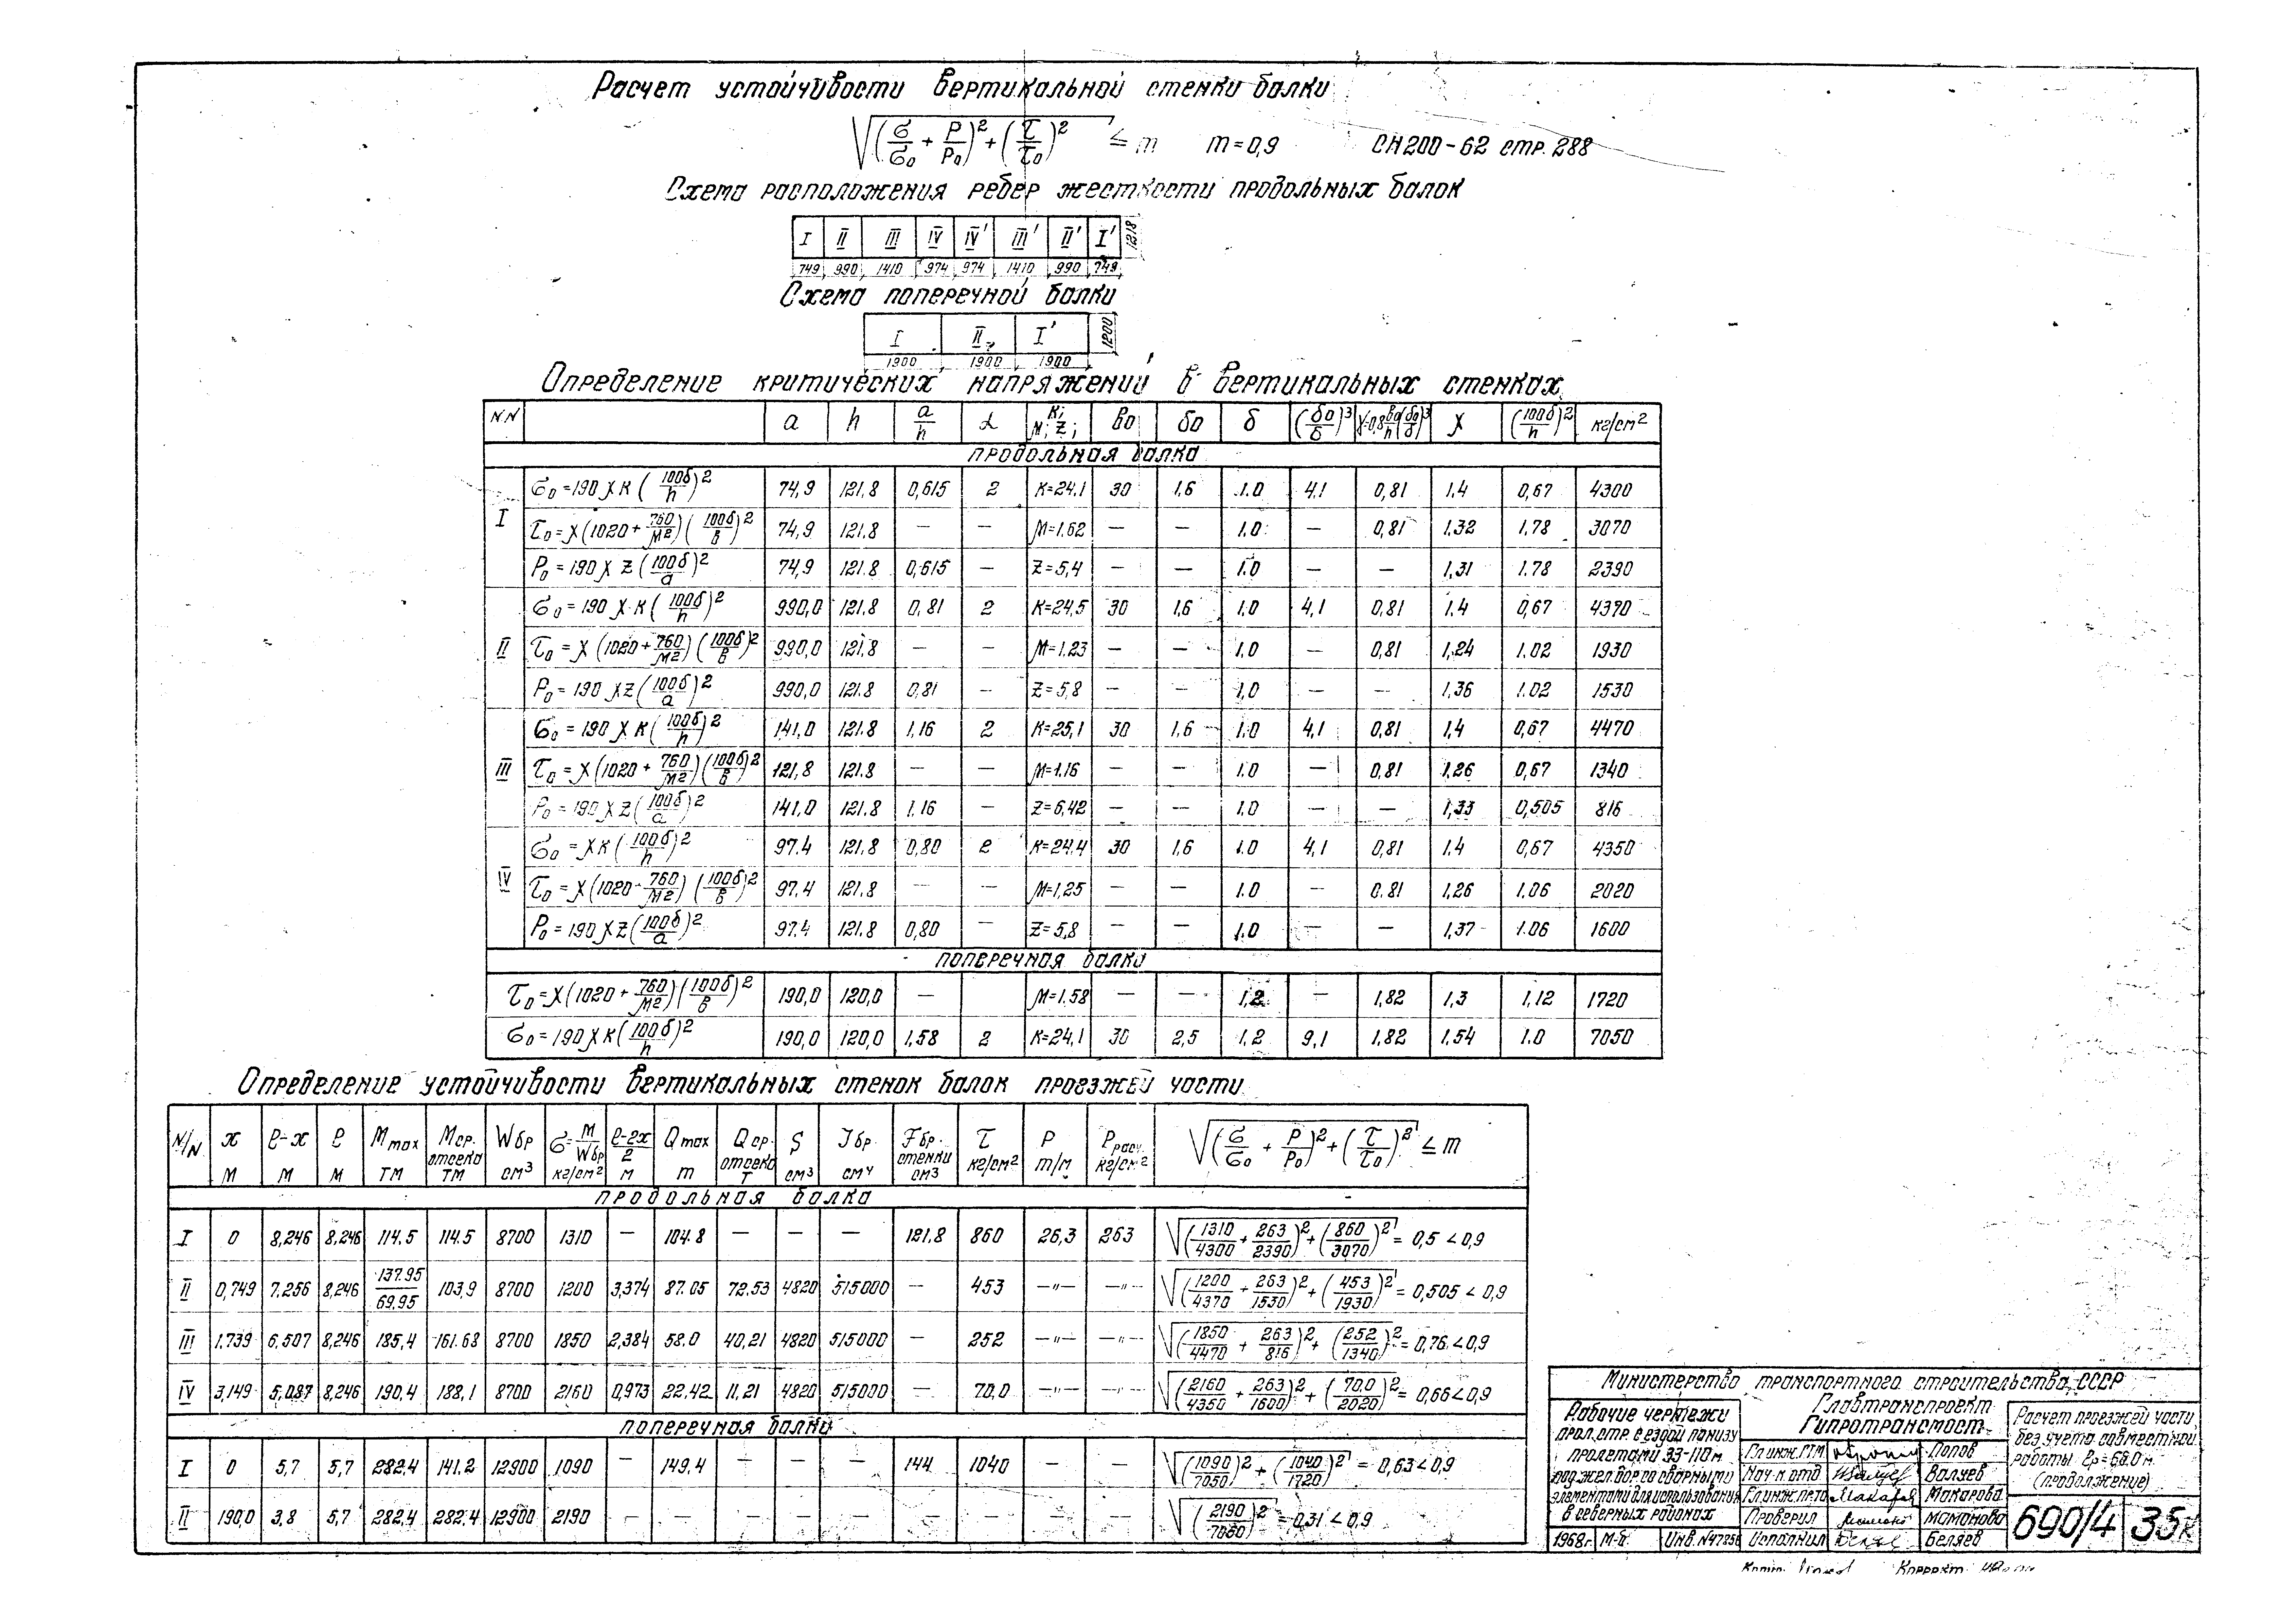 Расчет устойчивости вертикальной стенки балки
√((σ/σ₀ + P/P₀)² + (τ/τ₀)²) ≤ m m=0,9 СН200-62 стр. 288
Схема расположения ребер жесткости продольных балок
I II III IV IV' III' II' I' 1218
749 990 1410 974 974 1410 990 749
Схема поперечной балки
I II I' 1200
1900 1900 1900
Определение критических напряжений в вертикальных стенках
NN a h a/h α K; M; Z; b₀ δ₀ δ (δ₀/δ)³ γ=0,8 b₀/h (δ₀/δ)³ χ (100δ/h)² кг/см²
продольная балка
I σ₀=190χK(100δ/h)² 74,9 121,8 0,615 2 K=24,1 30 1,6 1.0 4,1 0,81 1,4 0,67 4300
τ₀=χ(1020+760/M²)(100δ/b)² 74,9 121.8 — — M=1.62 — — 1.0 — 0,81 1,32 1,78 3070
P₀=190χZ(100δ/a)² 74,9 121.8 0,615 — Z=5,4 — — 1.0 — — 1,31 1.78 2390
II σ₀=190χ·K(100δ/h)² 990,0 121,8 0,81 2 K=24,5 30 1,6 1.0 4,1 0,81 1,4 0,67 4370
τ₀=χ(1020+760/M²)(100δ/b)² 990,0 121,8 — — M=1.23 — — 1.0 — 0,81 1,24 1.02 1930
P₀=190χZ(100δ/a)² 990,0 121,8 0,81 — Z=5,8 — — 1,0 — — 1,36 1.02 1530
III σ₀=190χK(100δ/h)² 141,0 121.8 1,16 2 K=25,1 30 1,6 1.0 4,1 0,81 1,4 0,67 4470
τ₀=χ(1020+760/M²)(100δ/b)² 121,8 121.8 — — M=1.16 — — 1.0 — 0,81 1,26 0,67 1340
P₀=190χZ(100δ/a)² 141.0 121.8 1,16 — Z=6,42 — — 1.0 — — 1,33 0,505 816
IV σ₀=χK(100δ/h)² 97.4 121.8 0,80 2 K=24.4 30 1,6 1.0 4,1 0,81 1.4 0,67 4350
τ₀=χ(1020-760/M²)(100δ/b)² 97.4 121.8 — — M=1,25 — — 1.0 — 0.81 1,26 1.06 2020
P₀=190χZ(100δ/a)² 97.4 121.8 0,80 — Z=5,8 — — 1.0 — — 1,37 1.06 1600
поперечная балка
τ₀=χ(1020+760/M²)(100δ/b)² 190,0 120,0 — M=1.58 — — 1,2 — 1,82 1,3 1,12 1720
σ₀=190χK(100δ/h)² 190,0 120,0 1,58 2 K=24,1 30 2,5 1,2 9,1 1,82 1,54 1.0 7050
Определение устойчивости вертикальных стенок балок проезжей части
N/N x м ℓ-x м ℓ м Mmax тм Mср. отсека тм Wбр см³ σ=M/Wбр кг/см² ℓ-2x/2 м Qmax т Qср. отсека т S см³ Iбр. см⁴ Fбр. стенки см3 τ кг/см² P т/м Pрасч кг/см² √((σ/σ₀ + P/P₀)² + (τ/τ₀)²) ≤ m
продольная балка
I 0 8,246 8,246 114.5 114.5 8700 1310 — 104.8 — — — 121,8 860 26,3 263 √((1310/4300 + 263/2390)² + (860/3070)²) = 0,5 < 0,9
II 0,749 7.256 8,246 137.95/69.95 103,9 8700 1200 3,374 87.05 72.53 4820 515000 — 453 —"— —"— √((1200/4370 + 263/1530)² + (453/1930)²) = 0,505 < 0,9
III 1.739 6.507 8,246 185,4 161.68 8700 1850 2,384 58.0 40,21 4820 515000 — 252 —"— —"— √((1850/4470 + 263/816)² + (252/1340)²) = 0,76 < 0,9
IV 3,149 5,087 8,246 190,4 188,1 8700 2160 0,973 22.42 11,21 4820 515000 — 70,0 —"— —"— √((2160/4350 + 263/1600)² + (70,0/2020)²) = 0,66 < 0,9
поперечная балка
I 0 5,7 5,7 282,4 141.2 12900 1090 — 149,4 — — — 144 1040 — — √((1090/7050)² + (1040/1720)²) = 0,63 < 0,9
II 190,0 3,8 5,7 282,4 282,4 12900 2190 — — — — — — — — — √((2190/7050)²) = 0,31 < 0,9
Министерство транспортного строительства СССР
Главтранспроект
Гипротрансмост
Рабочие чертежи
прол. стр. с ездой понизу
пролетами 33-110м
под жел. дор со сварными
элементами для использования
в северных районах
1968г. М-б Инв. N47856
Гл.инж.ГТМ Попов
Нач-к отд Валуев
Гл.инж.пр-та Макарова
Проверил Мамонова
Исполнил Беляев
Расчет проезжей части
без учета совместной
работы ℓр=66.0м.
(продолжение)
690/4 35к
Коррект.